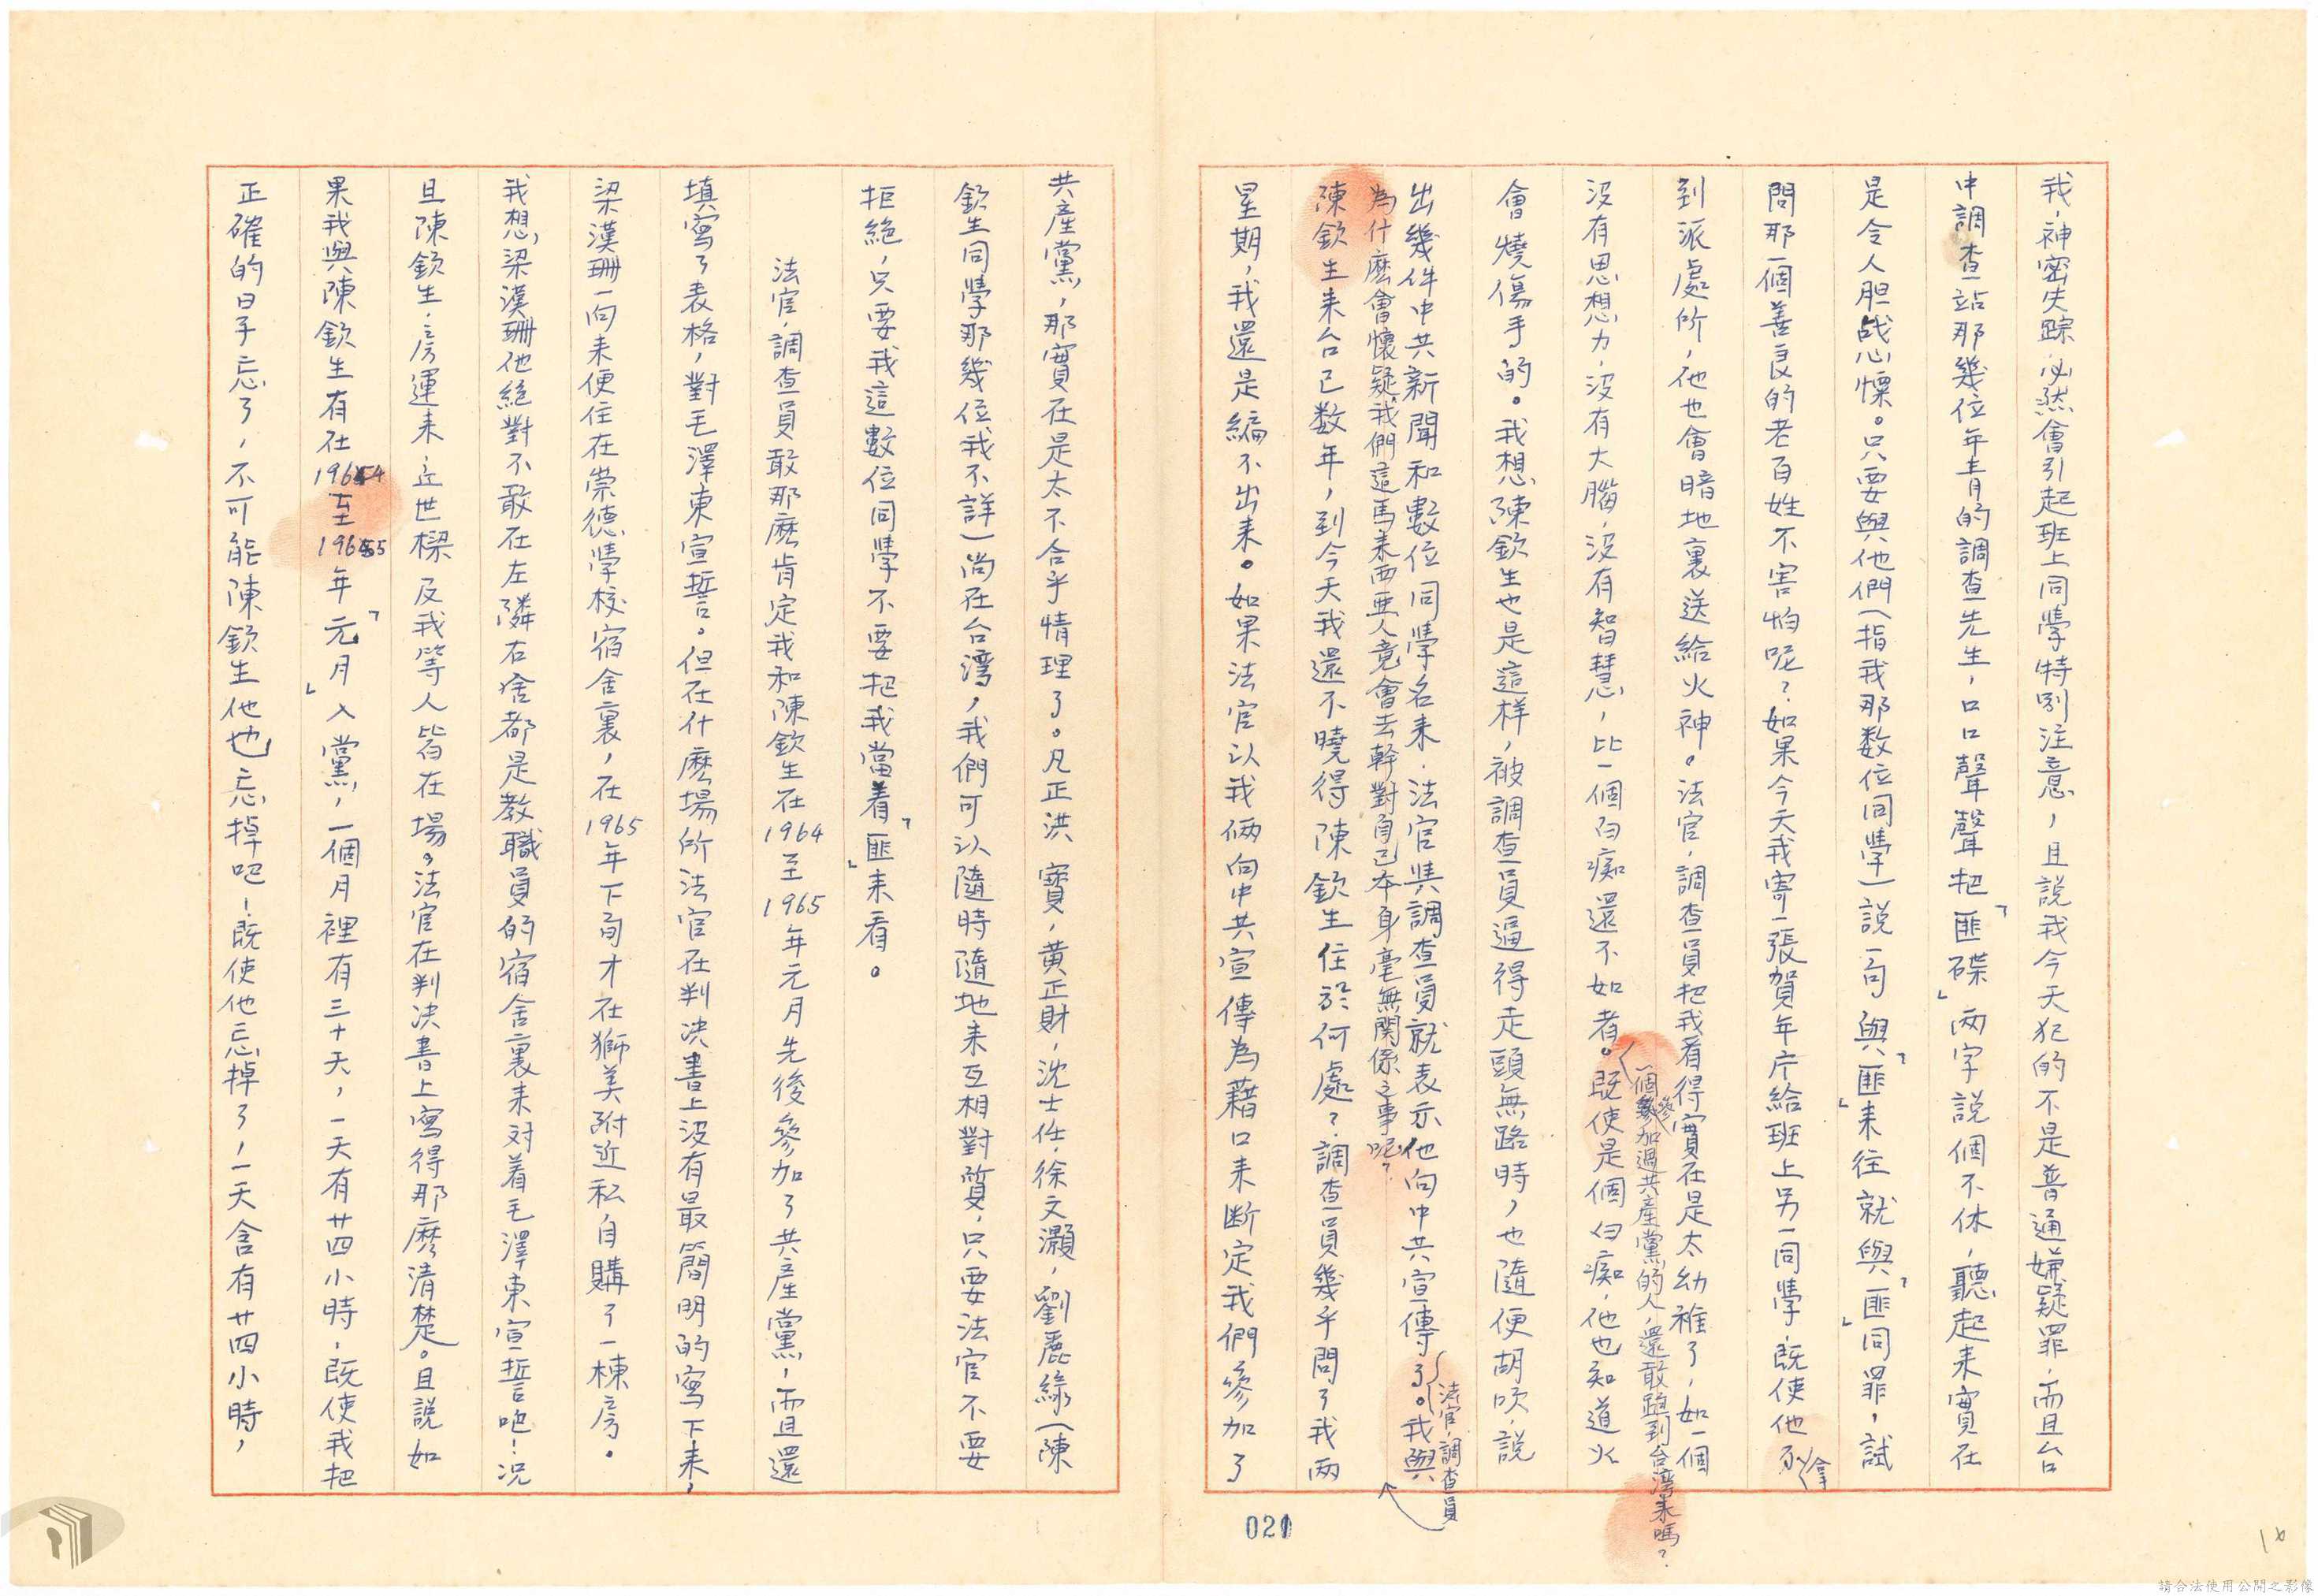 我，神密失踪，必然會引起班上同學特別注意，且說我今天犯的不是普通嫌疑罪，而且台
中調查站那幾位年青的調查先生，口口聲聲把「匪碟」两字說個不休，聽起来實在
是令人胆战心慄。只要與他們（指我那数位同學）說一句與「匪」来往就與「匪」同罪，試
問那一個善良的老百姓不害怕呢？如果今天我寄一張賀年片給班上另一同學，既使他不拿
到派處所，他也會暗地裏送給火神。法官，調查員把我看得實在是太幼稚了，如一個
沒有思想力，沒有大腦，沒有智慧，比一個白痴還不如者。既使是個白痴，他也知道火
一個參加過共產黨的人，還敢跑到台湾来嗎？
會燒傷手的。我想陳欽生也是這样，被調查員逼得走頭無路時，也隨便胡吹，說
出幾件中共新聞和數位同學名来，法官與調查員就表示他向中共宣傳了。我與
法官，調查員
為什麽會懷疑我們這馬来西亜人竟會去幹對自己本身毫無関係之事呢？
陳欽生来台已数年，到今天我還不曉得陳欽生住於何處？調查員幾乎問了我两
星期，我還是編不出来。如果法官以我倆向中共宣傳為藉口来断定我們參加了
共產黨，那實在是太不合乎情理了。凡正洪寶，黄正財，沈士任，徐文灝，劉麗緣（陳
欽生同學那幾位我不詳）尚在台灣，我們可以隨時隨地来互相對質，只要法官不要
拒絕，只要我這數位同學不要把我當着「匪」来看。
法官，調查員敢那麽肯定我和陳欽生在1964至1965年元月先後參加了共產黨，而且還
填寫了表格，對毛澤東宣誓。但在什麽場所法官在判决書上沒有最簡明的寫下来，
梁漢珊一向来便住在崇德學校宿舍裏，在1965年下旬才在獅美附近私自購了一棟房。
我想，梁漢珊他絕對不敢在左隣右舍都是教職員的宿舍裏来对着毛澤東宣誓吧！况
且陳欽生，房運来，丘世樑及我等人皆在場。法官在判决書上寫得那麽清楚。且說如
果我與陳欽生有在1964至1965年「元月」入黨，一個月裡有三十天，一天有廿四小時，既使我把
正確的日子忘了，不可能陳欽生他也忘掉吧！既使他忘掉了，一天含有廿四小時，
021
請合法使用公開之影像